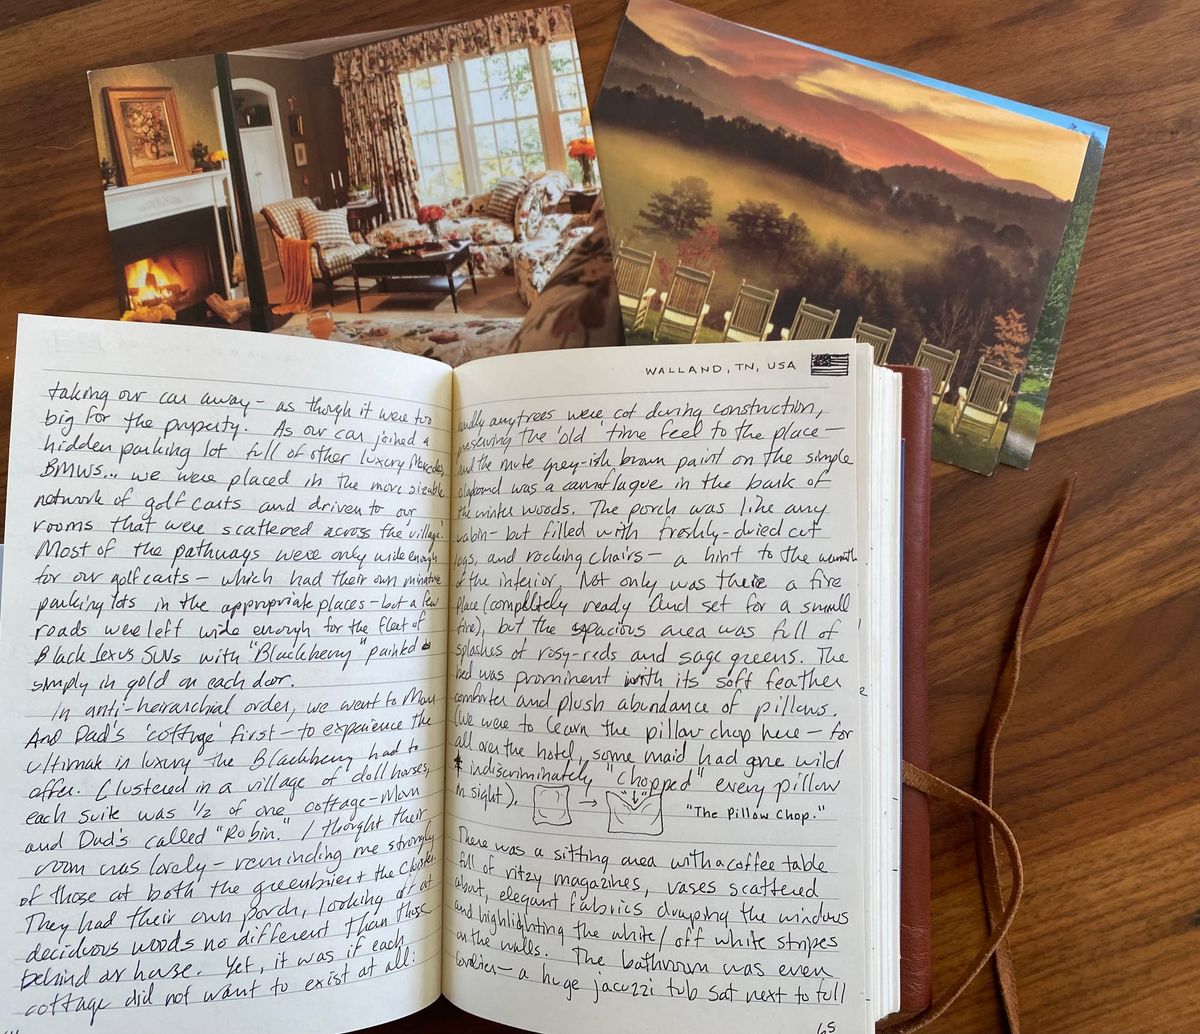 taking our car away – as though it were too
big for the property. As our car joined a
hidden parking lot full of other luxury Mercedes,
BMWs... we were placed in the more sizable
network of golf carts and driven to our
rooms that were scattered across the 'village.'
Most of the pathways were only wide enough
for our golf carts – which had their own miniature
parking lots in the appropriate places – but a few
roads were left wide enough for the fleet of
Black Lexus SUVs with "Blackberry" painted
simply in gold on each door.
In anti-heirarchial order, we went to Mom
And Dad's 'cottage' first – to experience the
ultimate in luxury the Blackberry had to
offer. Clustered in a village of doll houses,
each suite was 1/2 of one cottage – Mom
and Dad's called "Robin." I thought their
room was lovely – reminding me strongly
of those at both the greenbrier & the Cloister.
They had their own porch, looking off at
deciduous woods no different than those
behind our house. Yet, it was if each
cottage did not want to exist at all:
WALLAND, TN, USA
hardly any trees were cot during construction,
preserving the 'old' time feel to the place –
and the mute grey-ish brown paint on the simple
clapboard was a camoflague in the bark of
the winter woods. The porch was like any
cabin – but filled with freshly-dried cut
logs, and rocking chairs – a hint to the warmth
of the interior. Not only was there a fire
place (completely ready And set for a small
fire), but the spacious area was full of
splashes of rosy-reds and sage greens. The
bed was prominent with its soft feather
comforter and plush abundance of pillows.
(We were to learn the pillow chop here – for
all over the hotel, some maid had gone wild
& indiscriminately "chopped" every pillow
in sight). → "The Pillow Chop."
There was a sitting area with a coffee table
full of ritzy magazines, vases scattered
about, elegant fabrics draping the windows
and highlighting the white/off white stripes
on the walls. The bathroom was even
lovelier – a huge jacuzzi tub sat next to full
65